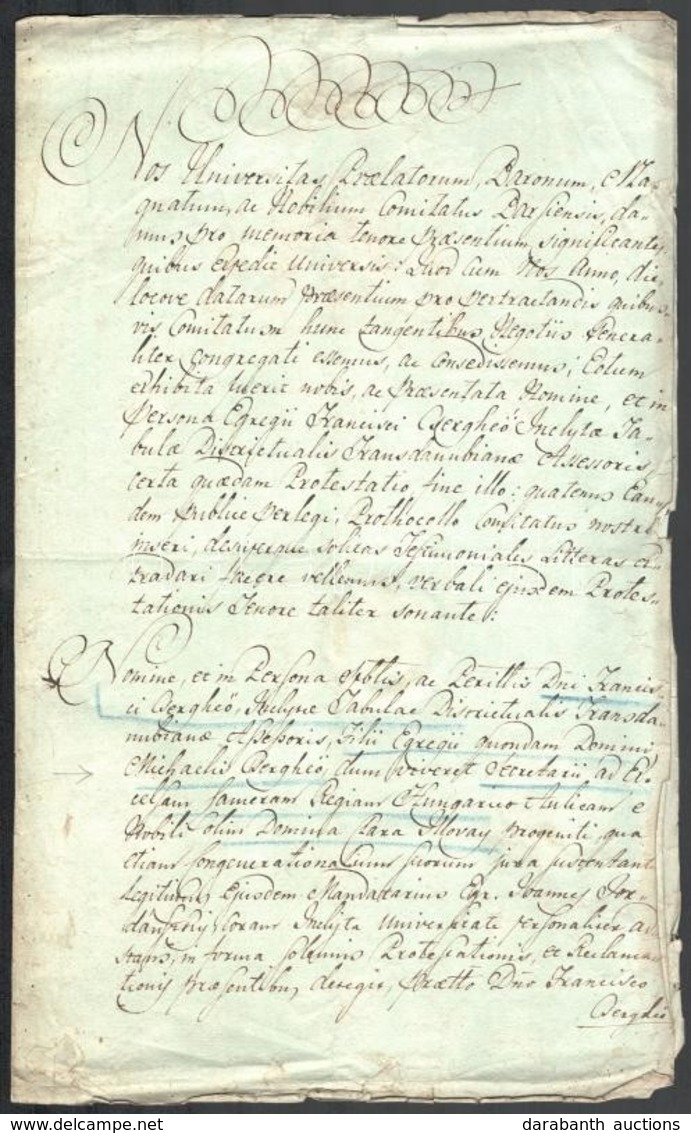 Nos Universitas Prælatorum, Baronum, Ma-
gnatum, ac Nobilium Comitatus Barsiensis, da-
mus pro memoria tenore Præsentium significantes,
quibus expedit Universis: Quod Cum Nos Anno, die,
locove datarum Præsentium pro pertractandis quibus-
vis Comitatum hunc tangentibus Negotiis Genera-
liter Congregati essemus, ac Consedissemus; Eotum
exhibita fuerit nobis, ac Præsentata Nomine, et in
Persona Egregii Francisci Bergheö Inclytæ Ta-
bulæ Districtualis Transdanubianæ Assessoris,
certa quædam Protestatio sine illo: quatenus Ean-
dem Publice Perlegi, Prothocollo Comitatus nostri
inseri, desuperque solitas Testimoniales Litteras ex-
tradari facere vellemus, verbali ejusdem Protes-
tationis Tenore taliter sonante:
Nomine, et in Persona ac Perillis Dni Francis-
ci Bergheö, Inclytæ Tabulae Districtualis Transda-
nubianæ Assessoris, Filii Egregii quondam Domini
Michaelis Bergheö, dum viveret Secretarii, ad Ex-
celsam Cameram Regiam Hungarico Aulicam e
Nobili olim Domina Clara Illovay progeniti, qua
etiam Congenerationalium suorum jura sustentant
Legitimus Ejusdem Mandatarius Egr. Joannes
Coram Inclyta Universitate personaliter ad
stans, in forma solennis Protestationis, et Reclama-
tionis præsentibus detegit, Prætto Dno Francisco
Bergheö
www.darabanth auctions